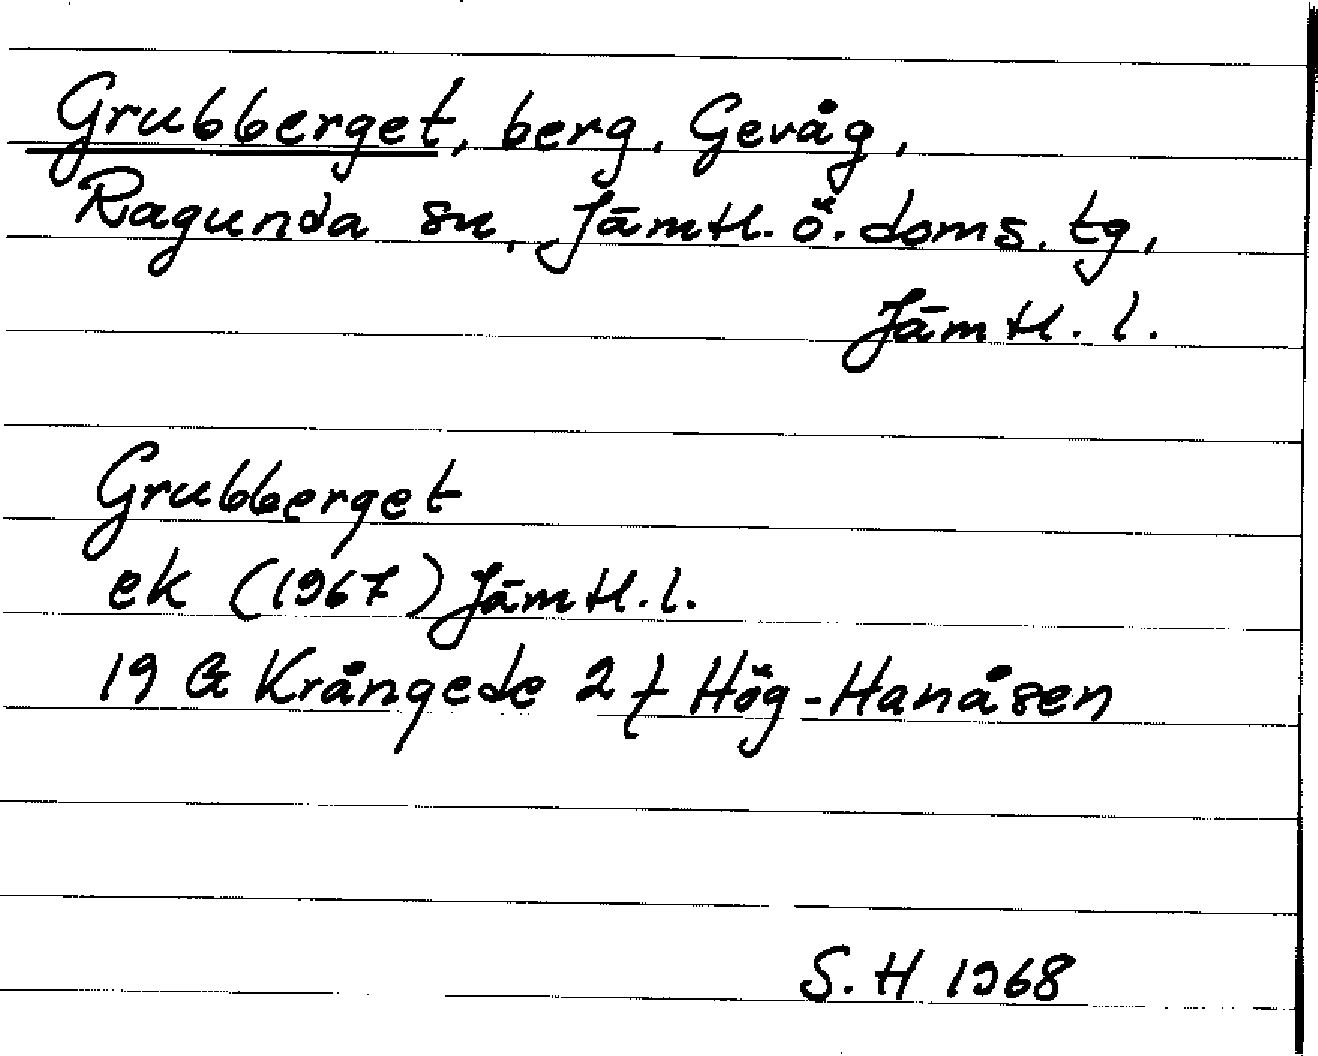 Grubberget, berg, Gevåg,
Ragunda sn, Jämtl. ö. doms. tg,
Jämtl. l.
Grubberget
ek (1967) Jämtl. l.
19 G Krångede 2 f Hög-Hanåsen
S. H 1968